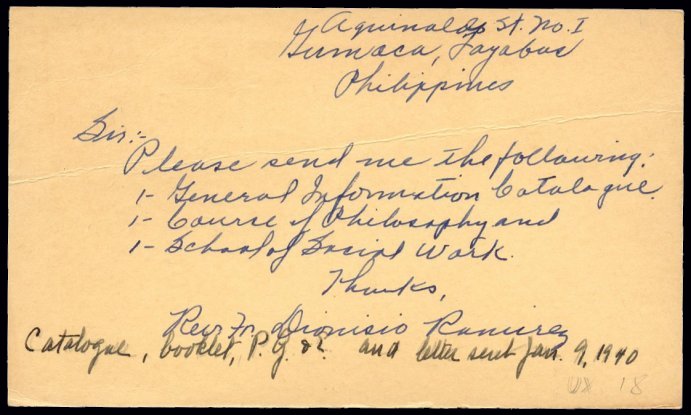 Aguinaldo St. No. I
Gumaca, Tayabas
Philippines
Sir:-
Please send me the following:
1- General Information Catalogue.
1- Course of Philosophy and
1- School of Social Work.
Thanks,
Rev. Fr. Dionisio Ramirez
Catalogue, booklet, P. G. and letter sent Jan. 9, 1940
18